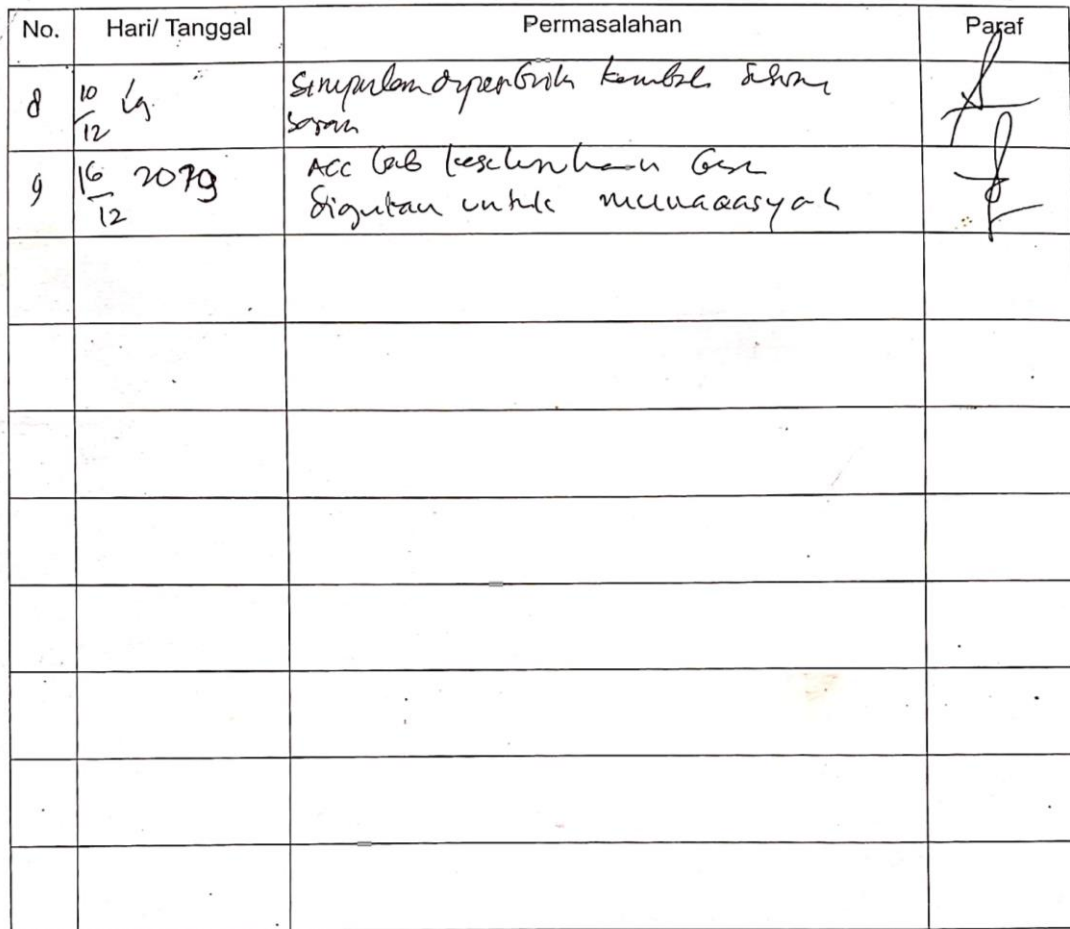 No. Hari/ Tanggal Permasalahan Paraf
8 10/12 19 Simpulan diperbaiki kembali
saran
9 16/12 2019 ACC bab keseluruhan
untuk munaqasyah